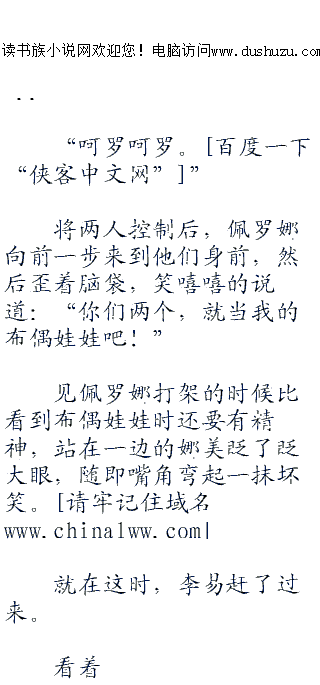 读书族小说网欢迎您！电脑访问www.dushuzu.com
..
“呵罗呵罗。[百度一下
“侠客中文网”]”
将两人控制后，佩罗娜
向前一步来到他们身前，然
后歪着脑袋，笑嘻嘻的说
道：“你们两个，就当我的
布偶娃娃吧！”
见佩罗娜打架的时候比
看到布偶娃娃时还要有精
神，站在一边的娜美眨了眨
大眼，随即嘴角弯起一抹坏
笑。[请牢记住域名
www.china1ww.com|
就在这时，李易赶了过
来。
看着